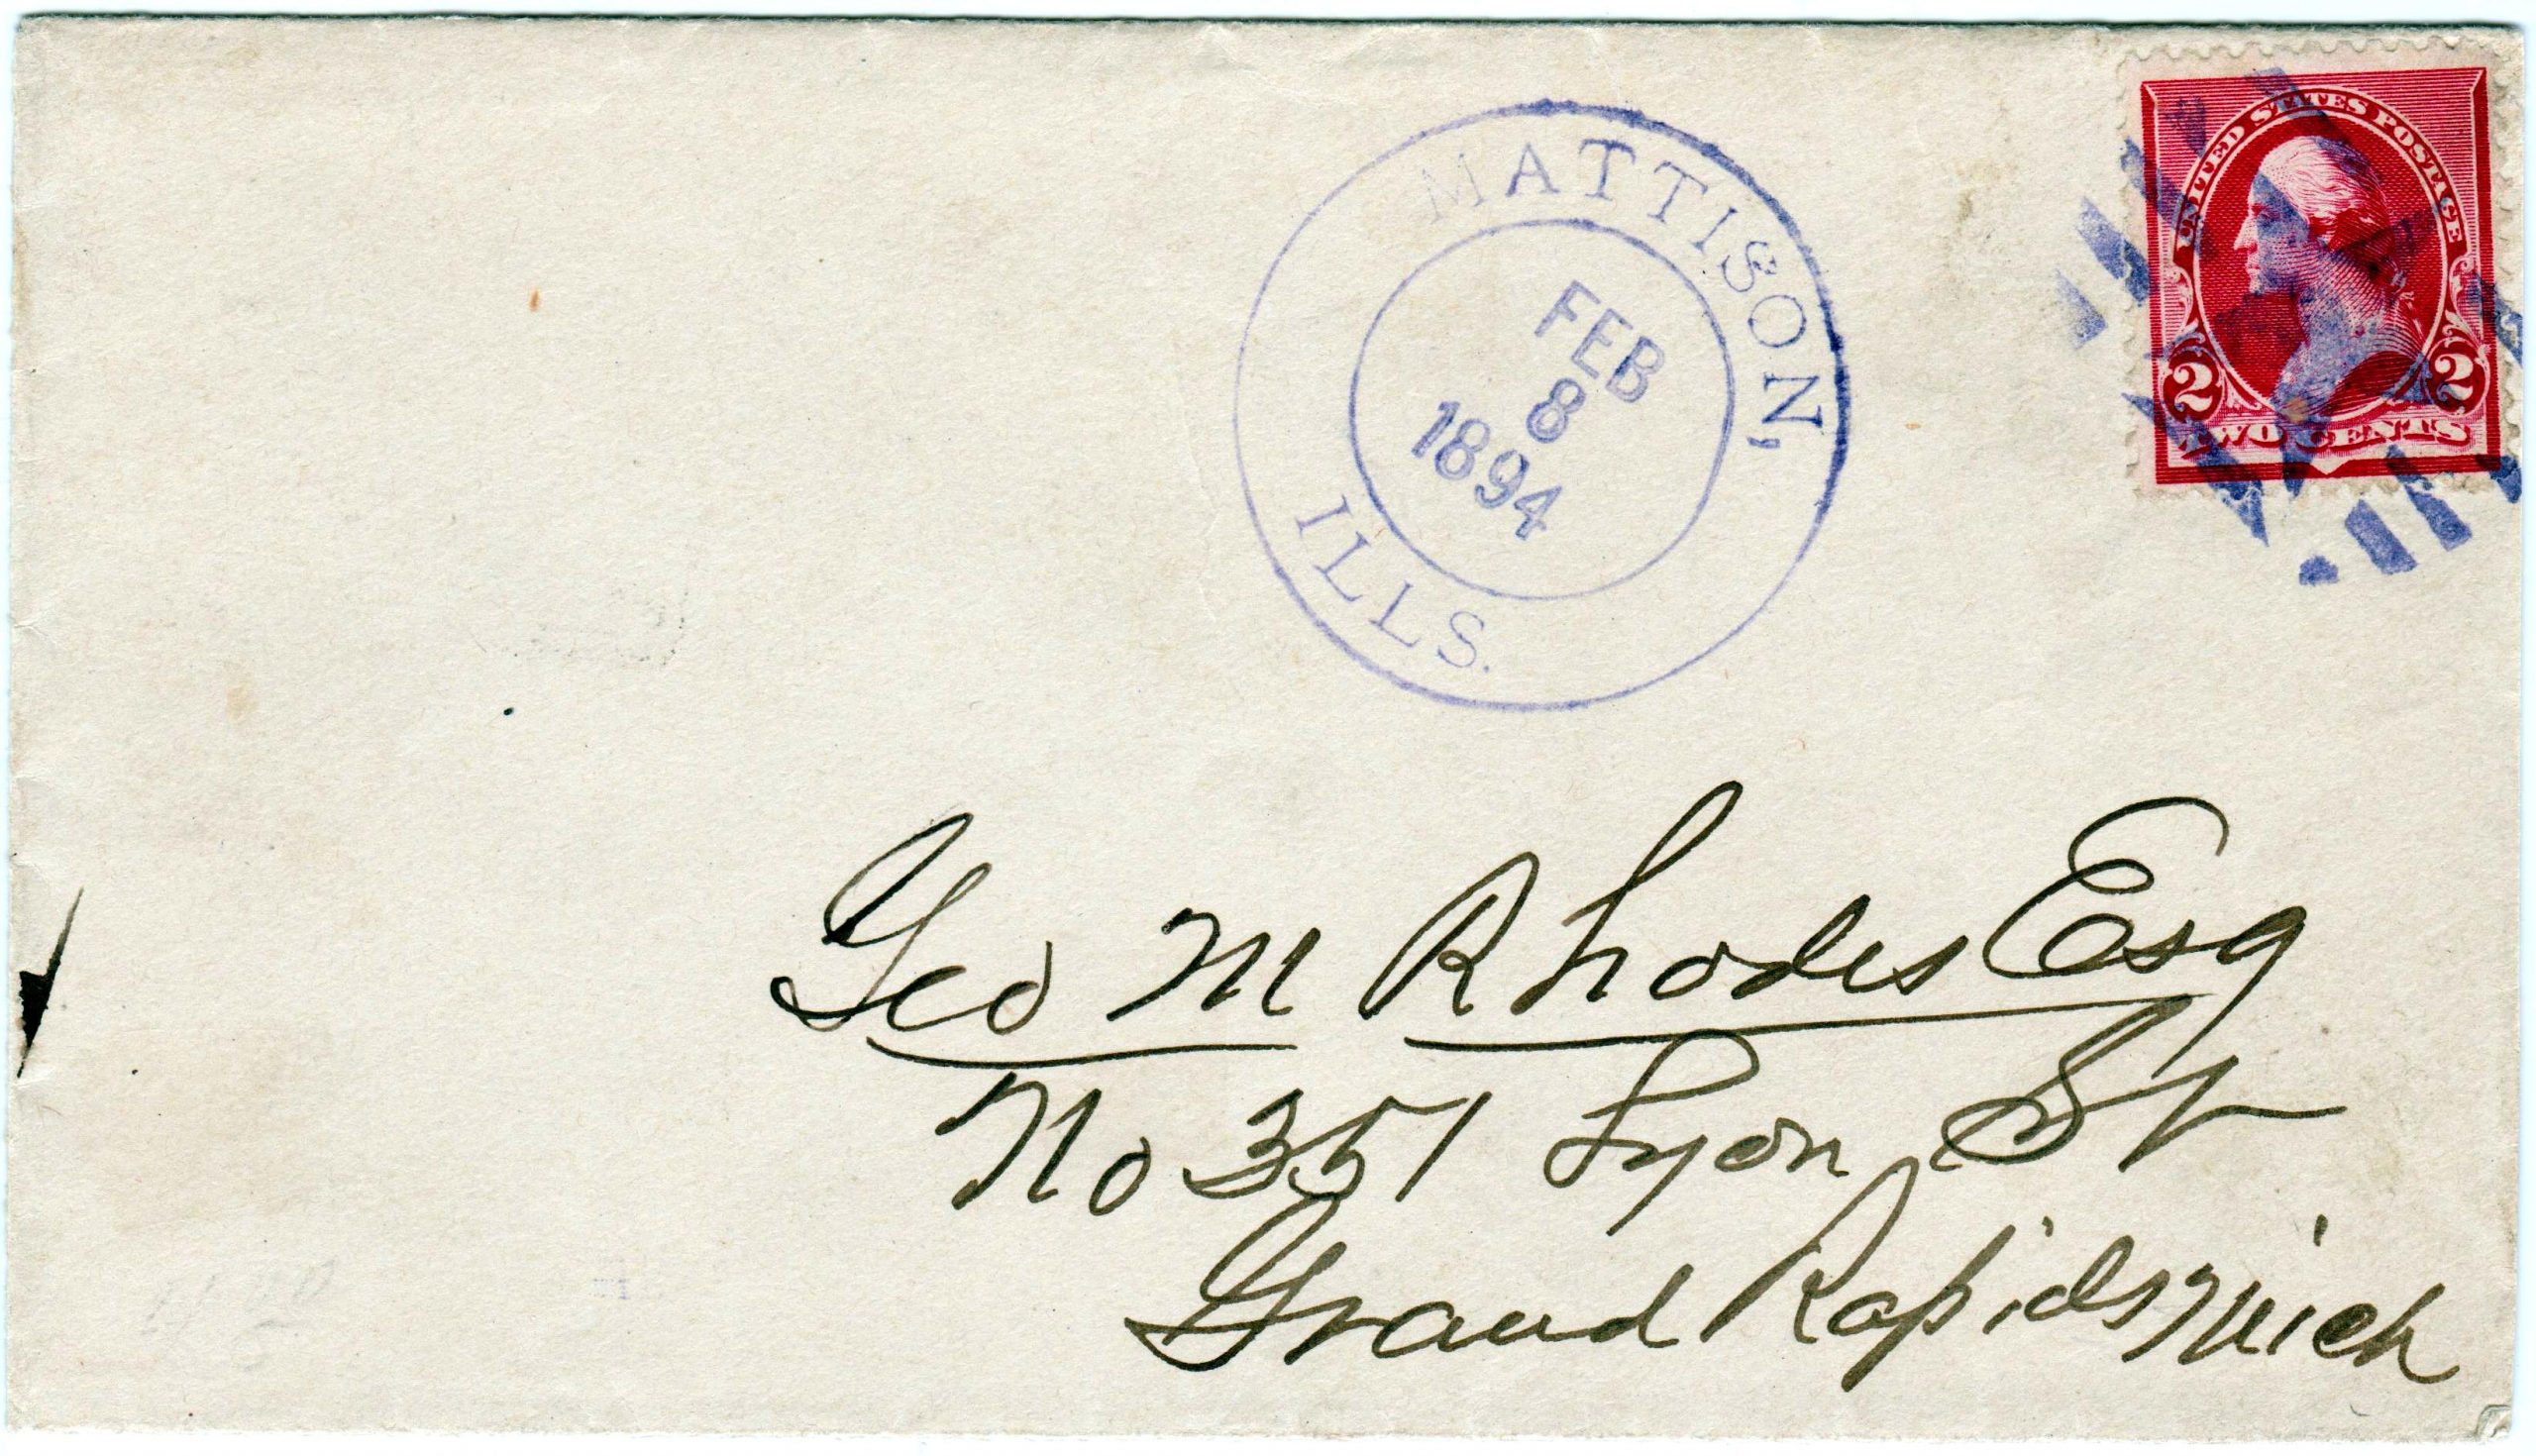 MATTISON,
ILLS.
FEB
8
1894
UNITED STATES POSTAGE
2 2
TWO CENTS
Geo M Rhodes Esq
No 351 Lyon St
Grand Rapids Mich